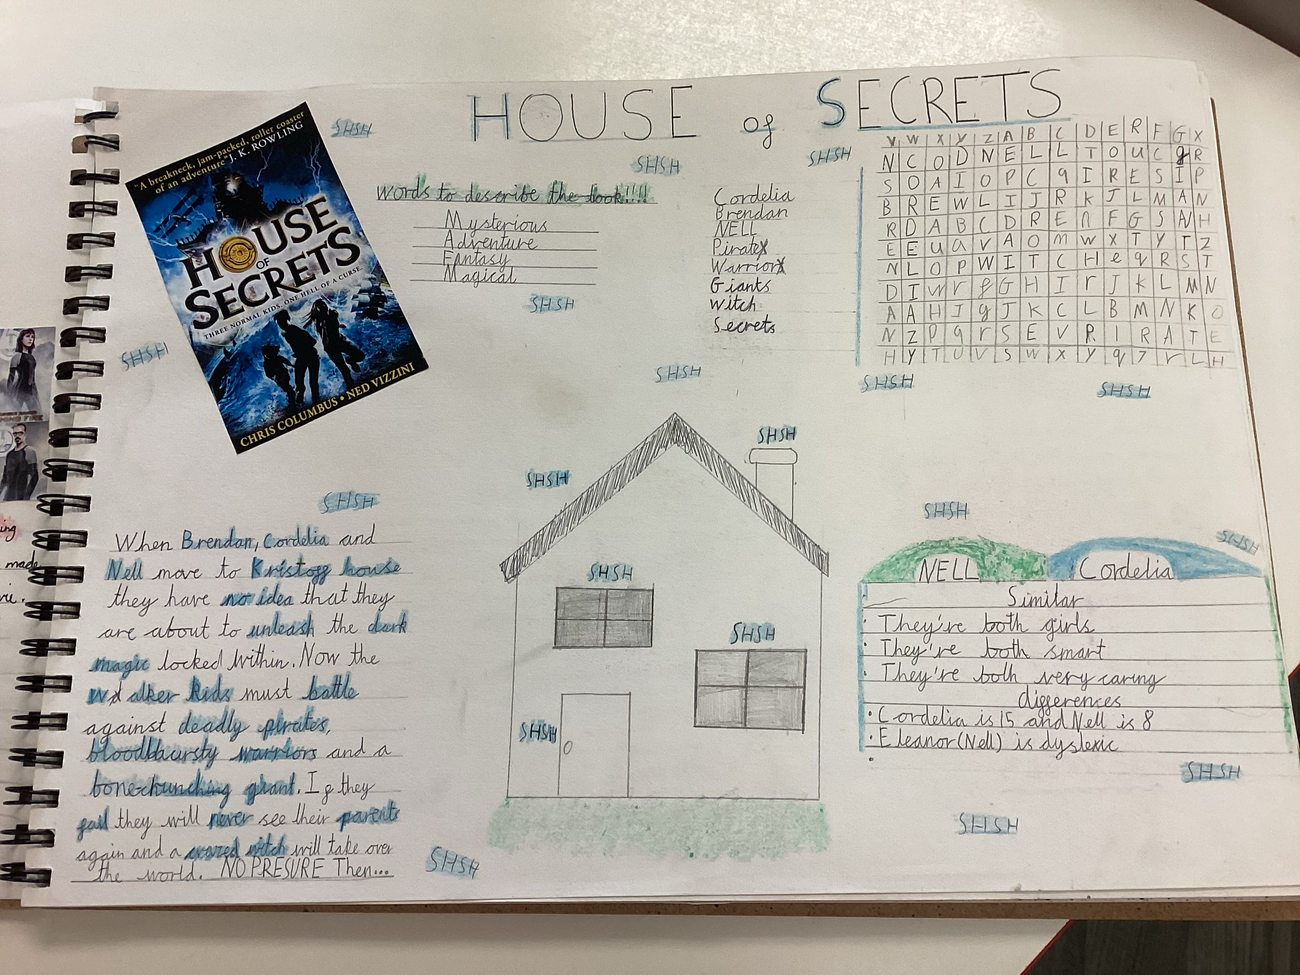 HOUSE of SECRETS
"A breakneck, jam-packed, roller coaster
of an adventure" J. K. ROWLING
HOUSE
OF
SECRETS
THREE NORMAL KIDS. ONE HELL OF A CURSE.
CHRIS COLUMBUS • NED VIZZINI
SHSH
SHSH
SHSH
words to describe the book!!!!
Mysterious
Adventure
Fantasy
Magical
SHSH
SHSH
SHSH
Cordelia
Brendan
NELL
Pirates
Warriors
Giants
witch
Secrets
V W X Y Z A B C D E R F G X
N C O D N E L L T O U C g R
S O A I O P C q I R E S I P
B R E W L I J R K J L M A N
R D A B C D R E n F G S N H
E E u a v A O m w x T Y T Z
N L O P W I T C H e q R S T
D I w r p G H I r J K L M N
A A H I g J K C L B M N K O
N Z P q r S E V R I R A T E
H Y T U V S W X Y q z r L H
SHSH
SHSH
SHSH
SHSH
SHSH
SHSH
SHSH
SHSH
When Brendan, Cordelia and
Nell move to Kristoff house
they have no idea that they
are about to unleash the dark
magic locked within. Now the
Walker kids must battle
against deadly pirates,
bloodthursty warriors and a
bone-chunching giant. If they
fail they will never see their parents
again and a crazed witch will take over
the world. NO PRESURE Then...
SHSH
SHSH
SHSH
NELL Cordelia
Similar
• They're both girls
• They're both smart
• They're both very caring
differences
• Cordelia is 15 and Nell is 8
• Eleanor (Nell) is dyslexic
SHSH
SHSH
ing
made